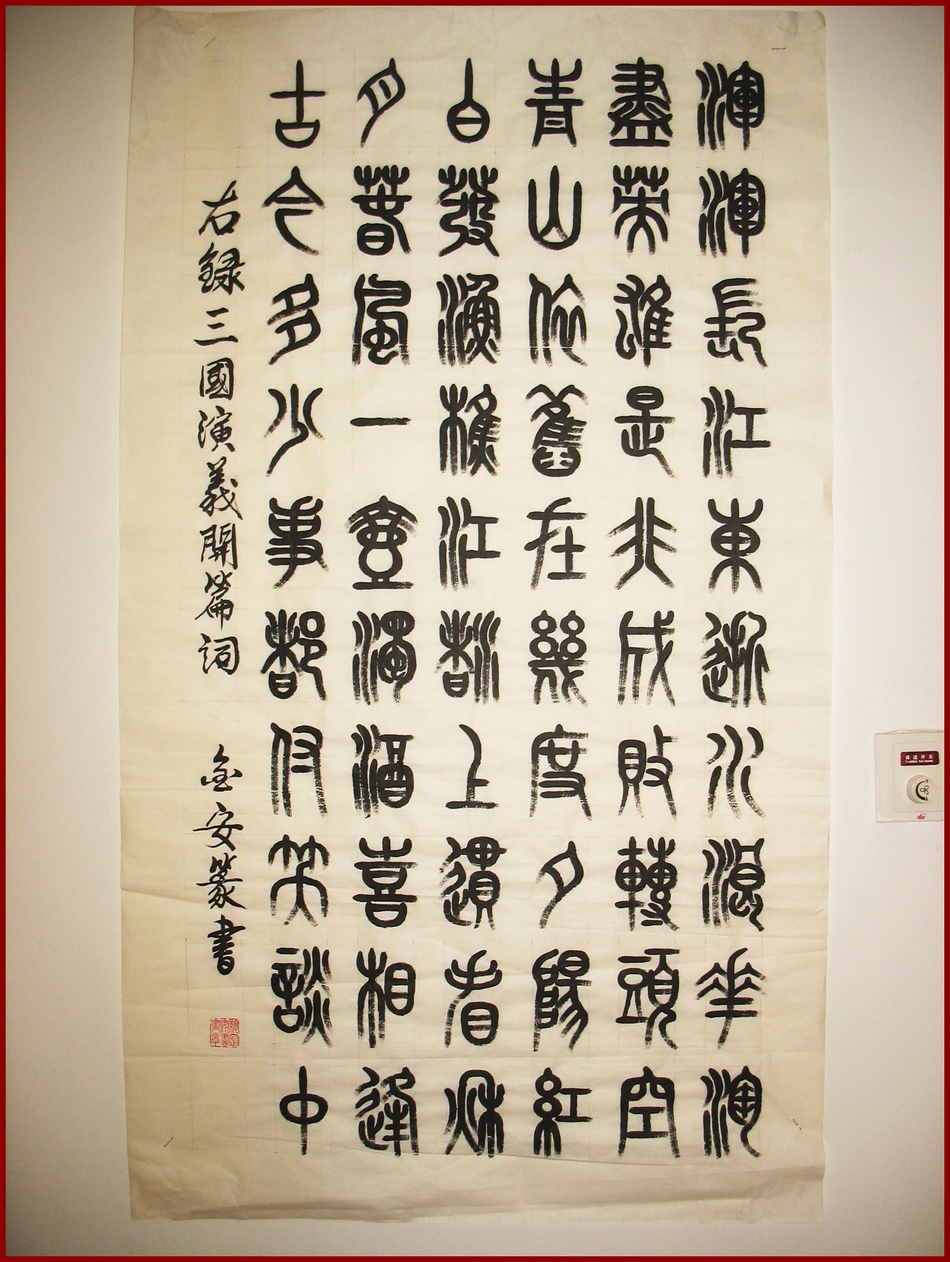 渾渾長江東逝水浪花淘
盡英雄是非成敗轉頭空
青山依舊在幾度夕陽紅
白發漁樵江渚上遦看秌
月春風一壺濁酒喜相逢
古今多少事都付笑談中
右録三國演義開篇詞 金安篆書